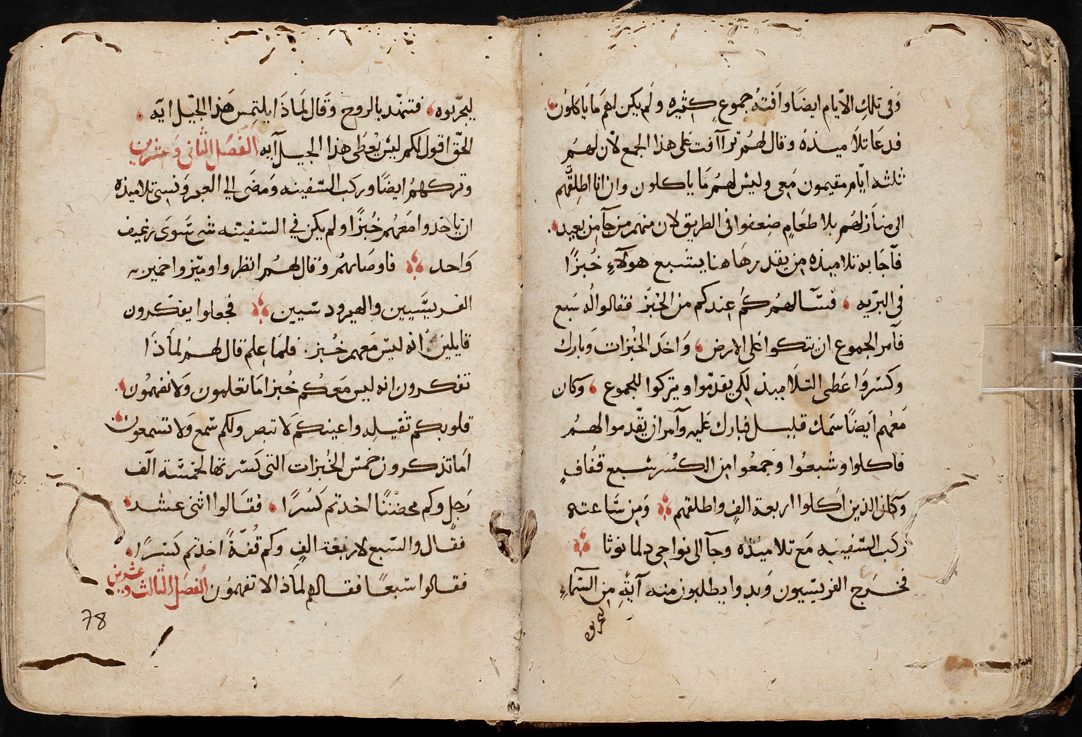 وفى تلك الايام ايضًا وافته جموع كثيره ولم يكن لهم ما ياكلون
فدعا تلاميذه وقال لهم ترآافت على هذا الجمع لان لهم
ثلثه ايام مقيمون معى وليس لهم ما ياكلون وان انا اطلقتهم
الى منازلهم بلا طعام ضعفوا فى الطريق لان منهم من جآ من بعيد
فآجابه تلاميذه من يقدر هاهنا يشبع هولآء خبزًا
فى البريه فسالهم كم عندكم من الخبز فقالوا له سبع
فآمر الجموع ان يتكوا على الارض واخذ الخبزات وبارك
وكسر واعطى التلاميذ لكى يقدموا ويتركوا للجموع وكان
معهم ايضًا سمك قليل فبارك عليه وآمر ان يقدموا لهم
فاكلوا وشبعوا وجمعوا من الكسر سبع قفاف
وكان الذين اكلوا اربعة الف واطلقهم ومن ساعته
ركب السفينه مع تلاميذه وجآ الى نواحى دلمانوثا
فخرج الفريسيون وبدوا يطلبون منه آية من السمآء
ليجربوه فتنهد بالروح وقال لماذا يلتمس هذا الجيل ايه
الحق اقول لكم ليس يُعطى هذا الجيل آيه الفصل الثانى وعشرين
وتركهم ايضًا وركب السفينه ومضى الى العبر ونسى تلاميذه
ان ياخدوا معهم خبزًا ولم يكن فى السفينه شى سوى رغيف
واحد فاوصاهم وقال لهم انظروا وميزوا خمير
الفريسيين والهيرودسيين فجعلوا يفكرون
قايلين انه ليس معهم خبز فلما علم قال لهم لماذا
تفكرون انه ليس معكم خبز اما تعلمون ولا تفهمون
قلوبكم تقيله واعينكم لا تبصر ولكم سمع ولا تسمعون
اما تذكرون خمس الخبزات التى كسرتها لخمسة الف
رجل وكم اخدتم كسرًا فقالوا اثنى عشر
فقال والسبع لاربعة الف وكم قفة اخدتم كسرًا
فقالوا سبعًا فقال لهم لماذا لا تفهمون الفصل الثالث وعشرين
78